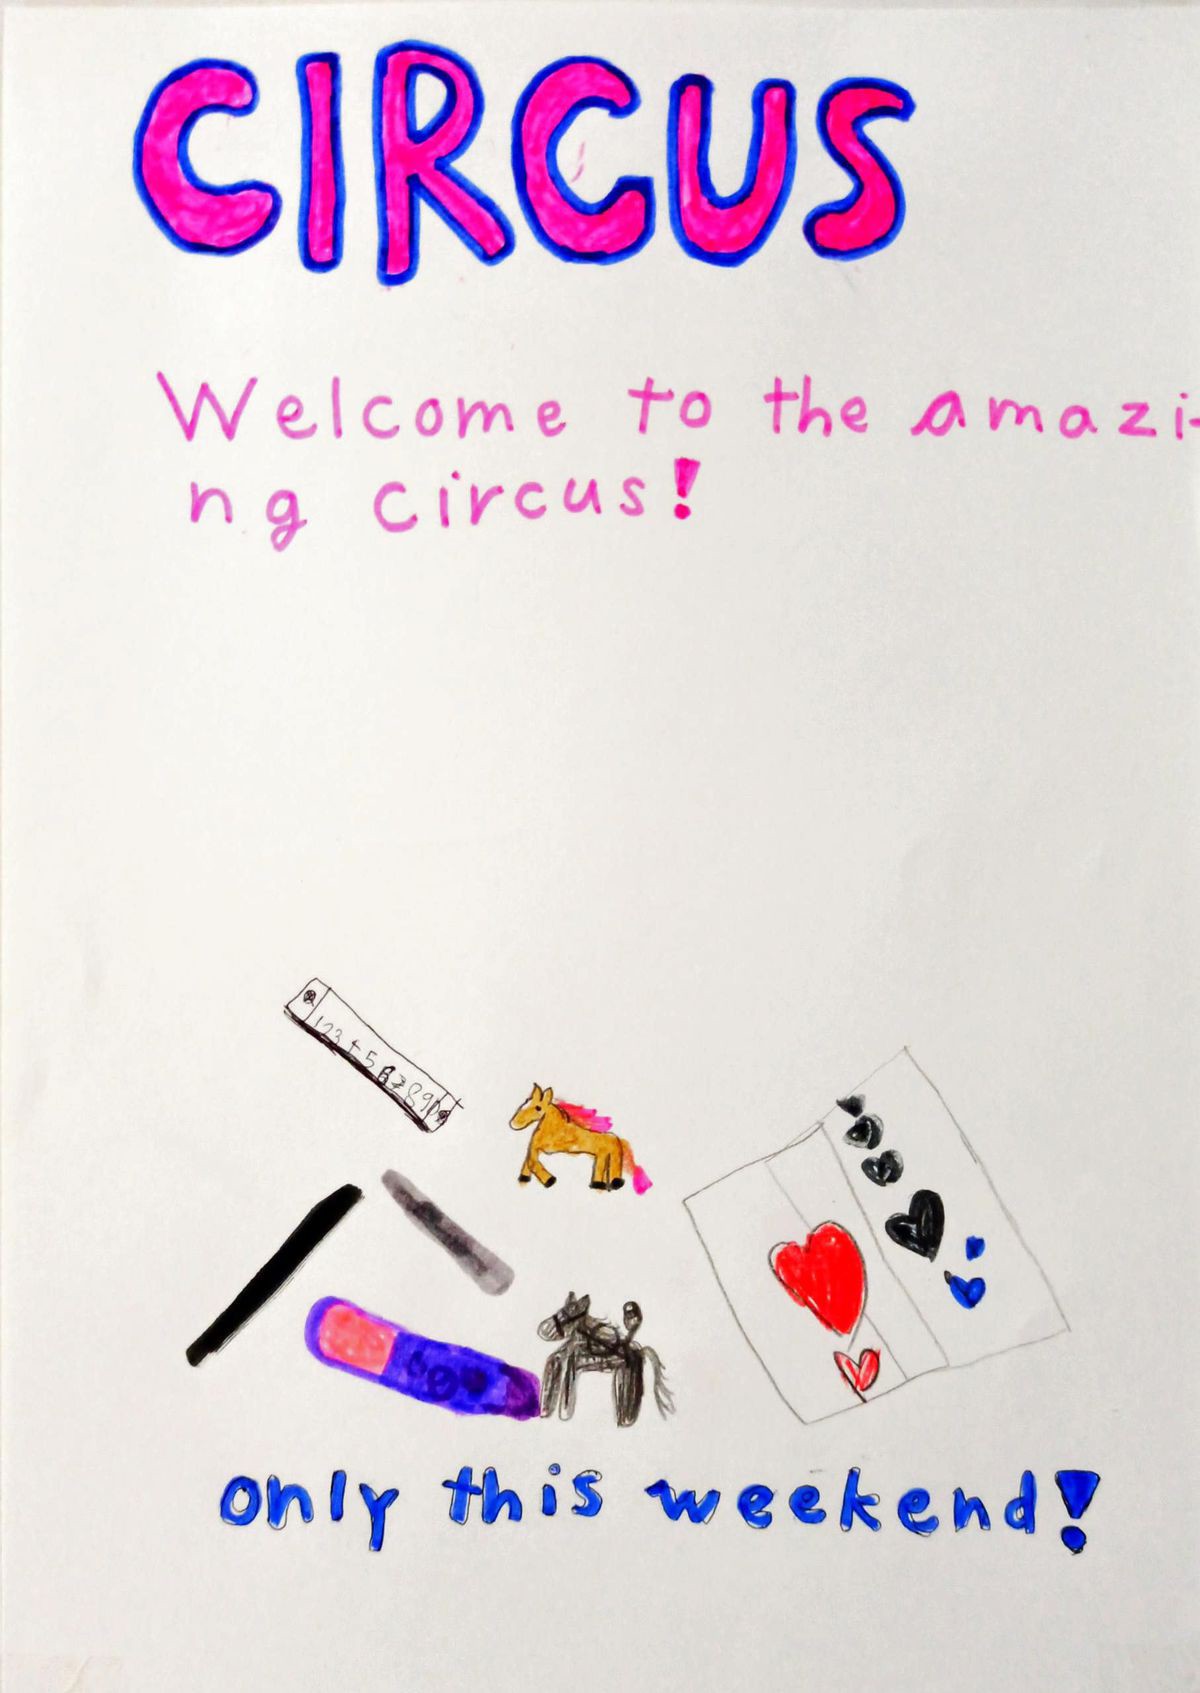 CIRCUS
Welcome to the amazi-
ng circus!
only this weekend!